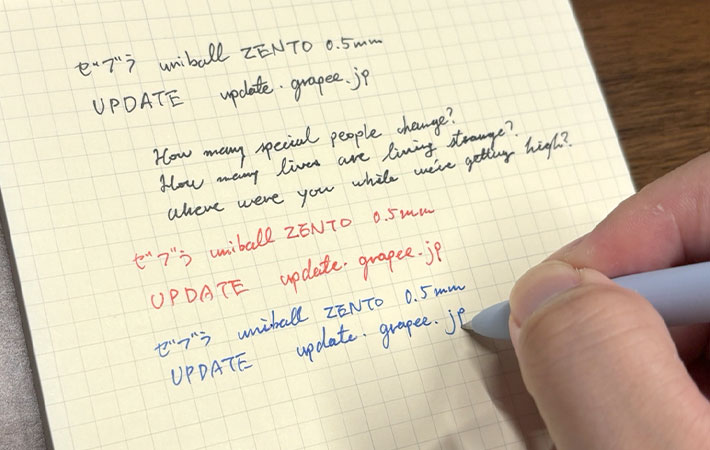 ゼブラ uniball ZENTO 0.5mm
UPDATE update.grapee.jp
How many special people change?
How many lives are living strange?
Where were you while we're getting high?
ゼブラ uniball ZENTO 0.5mm
UPDATE update.grapee.jp
ゼブラ uniball ZENTO 0.5mm
UPDATE update.grapee.jp